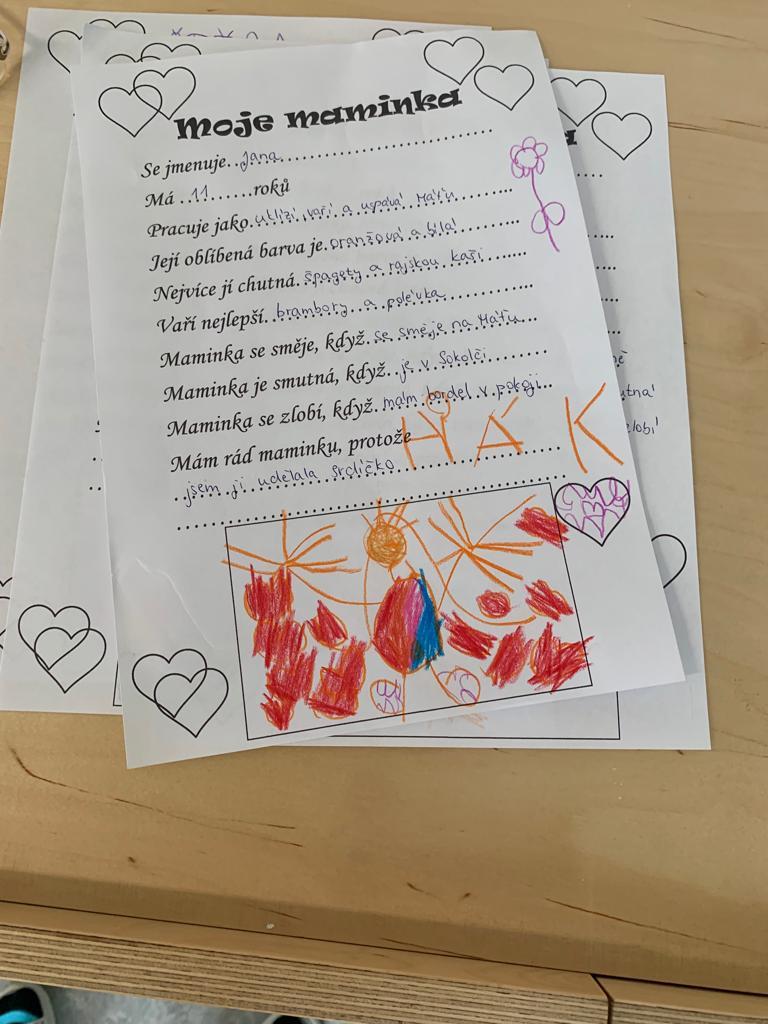 Moje maminka
Se jmenuje..Jana
Má ..11.......roků
Pracuje jako.uklízí, vaří a uspává Máťu
Její oblíbená barva je.oranžová a bílá
Nejvíce jí chutná.špagety a rajskou kaši
Vaří nejlepší..brambory a polévka
Maminka se směje, když..se směje na Máťu
Maminka je smutná, když..je v Sokolči
Maminka se zlobí, když.mám bordel v pokoji
Mám rád maminku, protože
jsem jí udělala srdíčko
HÁK